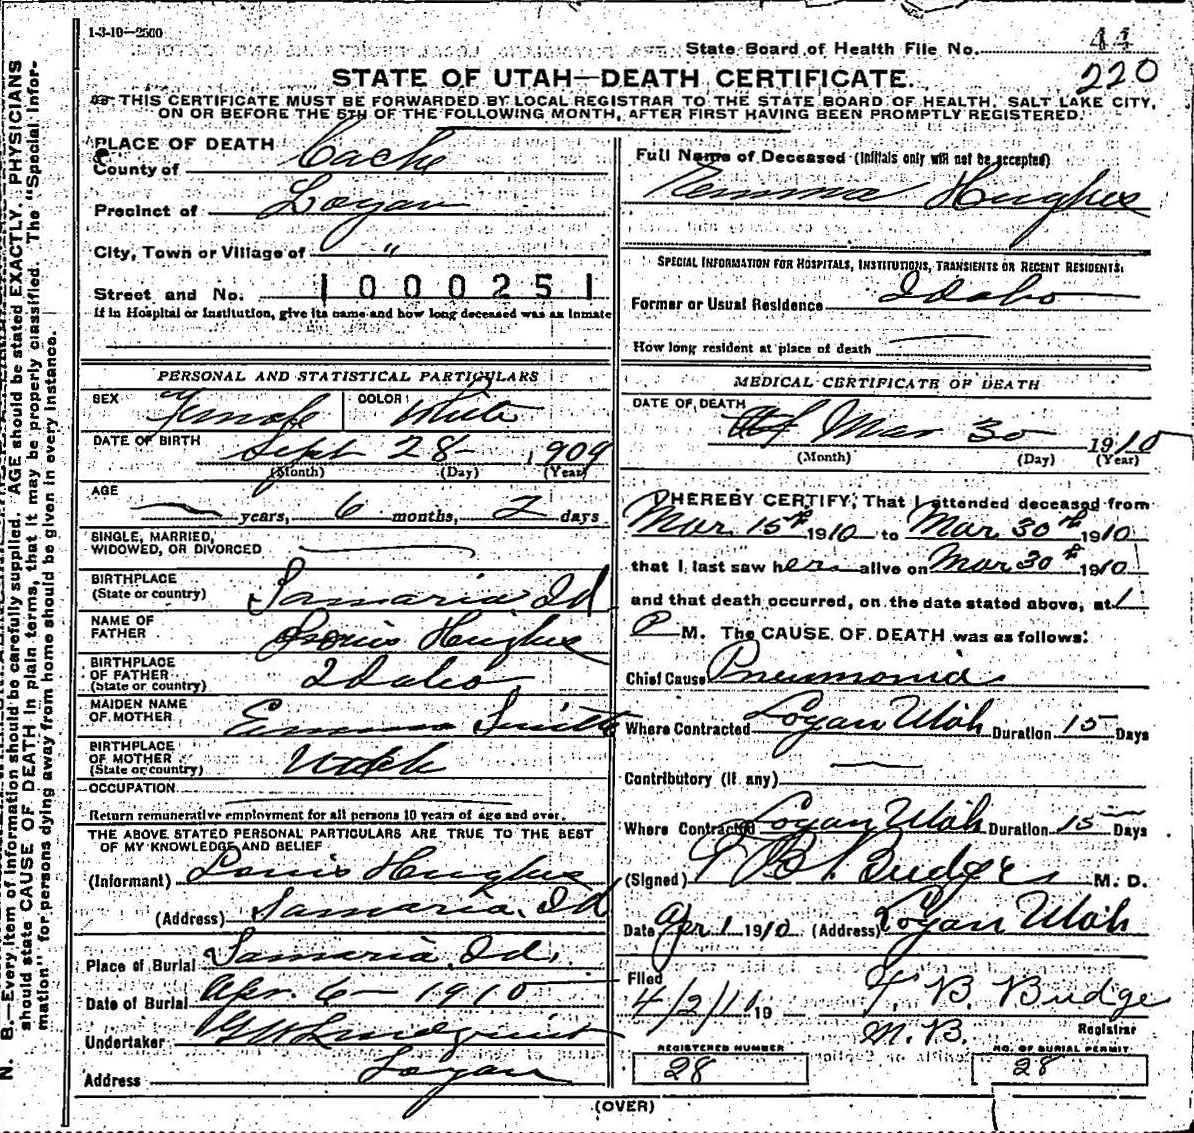 1-3-10—2500
State Board of Health File No. 44
220
STATE OF UTAH—DEATH CERTIFICATE.
THIS CERTIFICATE MUST BE FORWARDED BY LOCAL REGISTRAR TO THE STATE BOARD OF HEALTH, SALT LAKE CITY,
ON OR BEFORE THE 5TH OF THE FOLLOWING MONTH, AFTER FIRST HAVING BEEN PROMPTLY REGISTERED.
N. B.—Every item of information should be carefully supplied. AGE should be stated EXACTLY. PHYSICIANS
should state CAUSE OF DEATH in plain terms, that it may be properly classified. The "Special Infor-
mation" for persons dying away from home should be given in every instance.
PLACE OF DEATH
County of Cache
Precinct of Logan
City, Town or Village of "
Street and No. 1000251
If in Hospital or Institution, give its name and how long deceased was an inmate
PERSONAL AND STATISTICAL PARTICULARS
SEX Female COLOR White
DATE OF BIRTH Sept 28 1909
(Month) (Day) (Year)
AGE
— years, 6 months, 2 days
SINGLE, MARRIED,
WIDOWED, OR DIVORCED —
BIRTHPLACE
(State or country) Samaria, Id
NAME OF
FATHER Louis Hughes
BIRTHPLACE
OF FATHER
(State or country) Idaho
MAIDEN NAME
OF MOTHER Emma Smith
BIRTHPLACE
OF MOTHER
(State or country) Utah
OCCUPATION
Return remunerative employment for all persons 10 years of age and over.
THE ABOVE STATED PERSONAL PARTICULARS ARE TRUE TO THE BEST
OF MY KNOWLEDGE AND BELIEF
(Informant) Louis Hughes
(Address) Samaria, Id
Place of Burial Samaria, Id.
Date of Burial Apr. 6 — 1910
Undertaker G W Lindquist
Address Logan
Full Name of Deceased (Initials only will not be accepted)
Emma Hughes
SPECIAL INFORMATION FOR HOSPITALS, INSTITUTIONS, TRANSIENTS OR RECENT RESIDENTS:
Former or Usual Residence Idaho
How long resident at place of death —
MEDICAL CERTIFICATE OF DEATH
DATE OF DEATH
Mar 30 1910
(Month) (Day) (Year)
I HEREBY CERTIFY, That I attended deceased from
Mar. 15th 1910 to Mar. 30th 1910
that I last saw her alive on Mar 30th 1910
and that death occurred, on the date stated above, at 1
P M. The CAUSE OF DEATH was as follows:
Chief Cause Pneumonia
Where Contracted Logan Utah Duration 15 Days
Contributory (if any) —
Where Contracted Logan Utah Duration 15 Days
(Signed) T B. Budge M. D.
Date Apr 1 1910 (Address) Logan Utah
Filed
4/2/10 19 T. B. Budge
M. B. Registrar
REGISTERED NUMBER
28
NO. OF BURIAL PERMIT
28
(OVER)